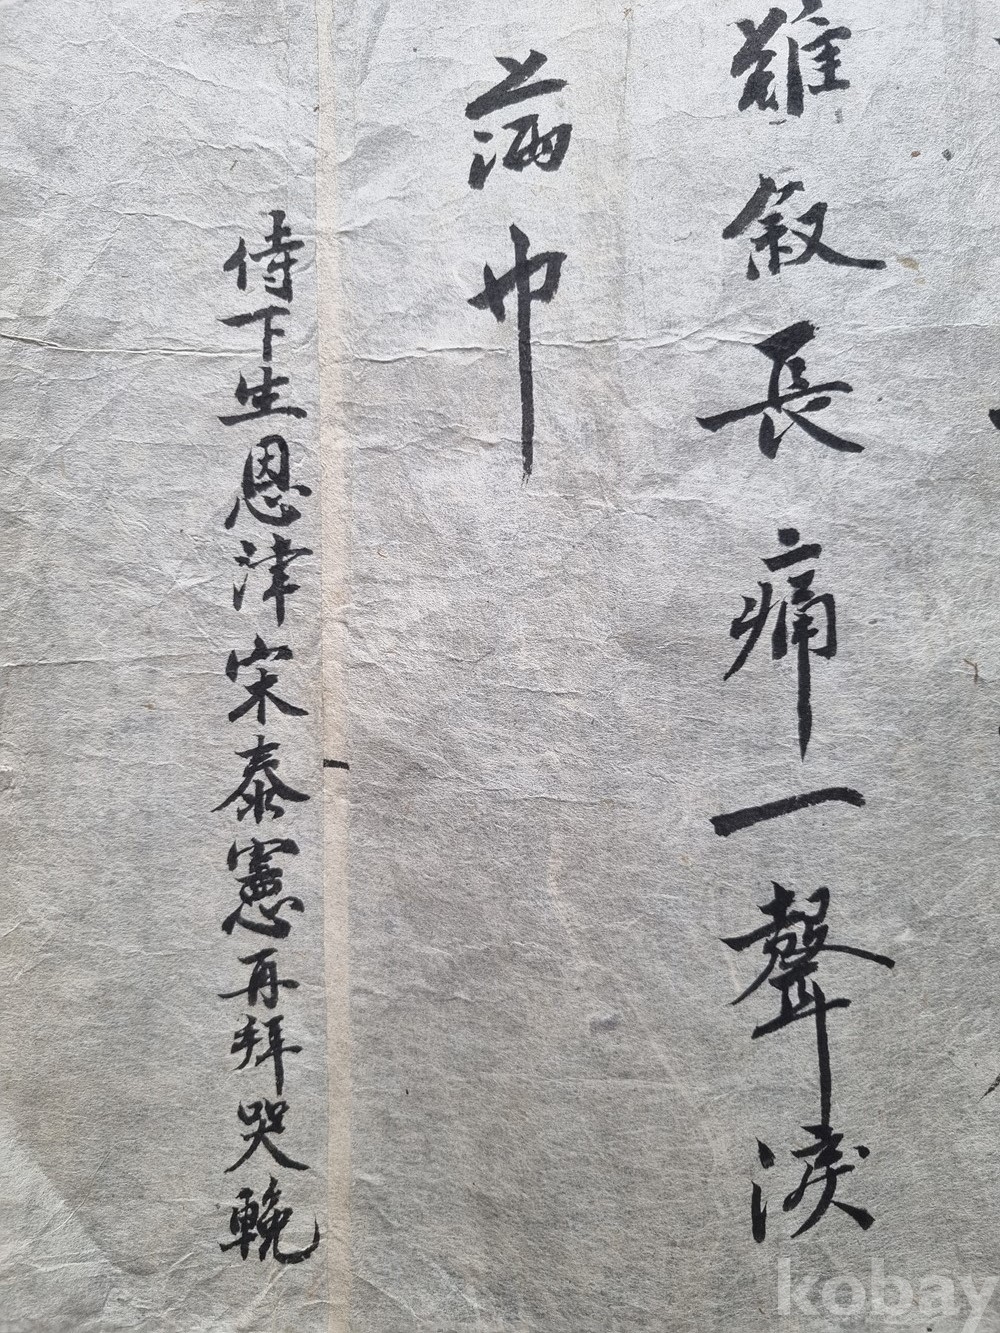 難叙長痛一聲淚
滿巾
侍下生恩津宋泰憲再拜哭輓
kobay